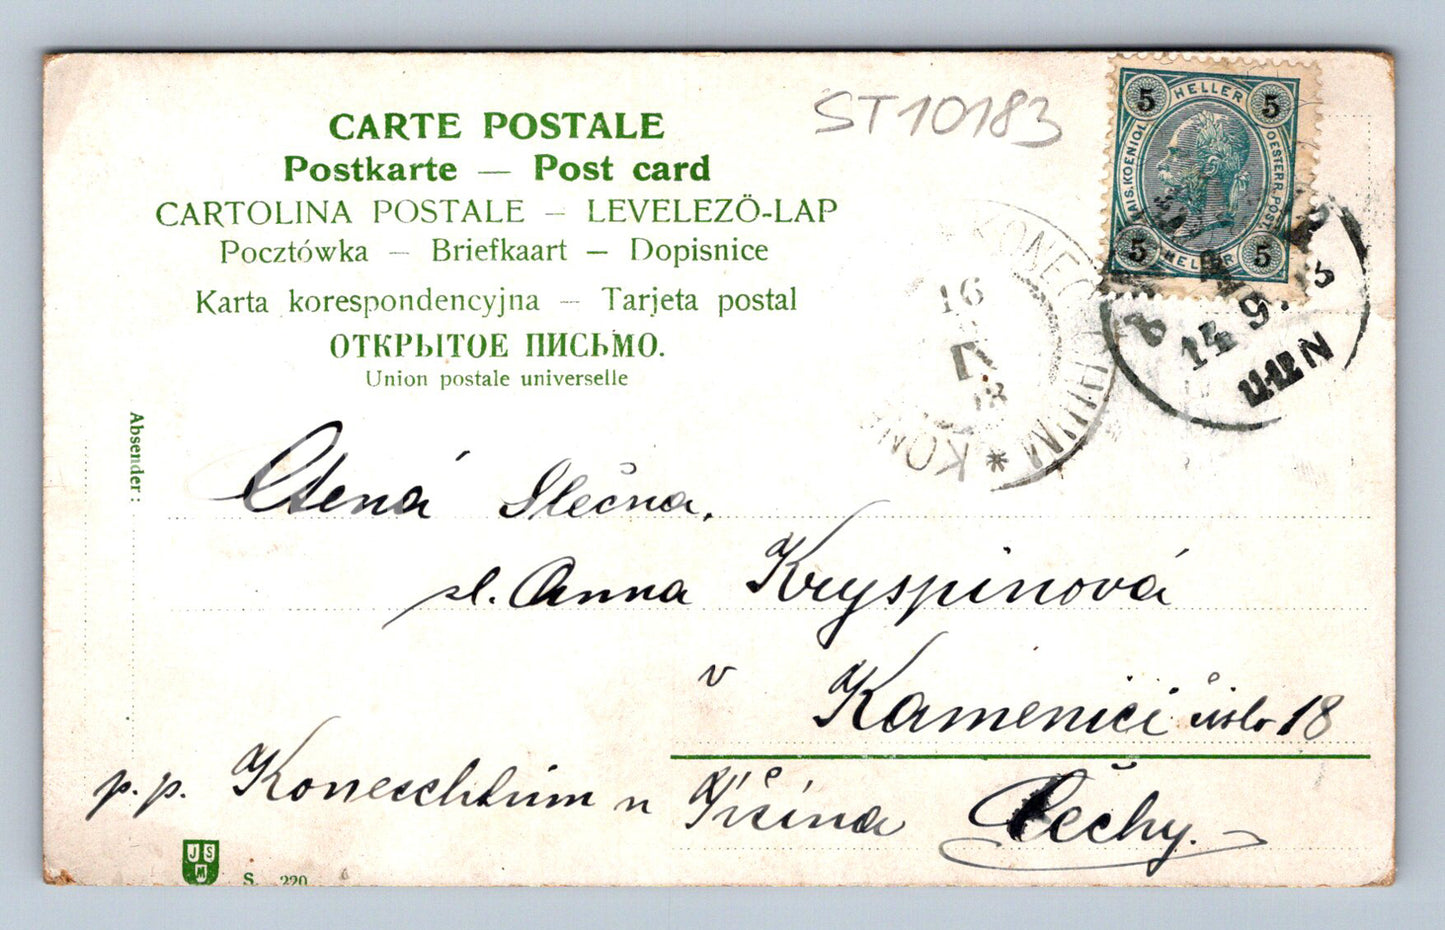 CARTE POSTALE
Postkarte — Post card
CARTOLINA POSTALE – LEVELEZÖ-LAP
Pocztówka – Briefkaart – Dopisnice
Karta korespondencyjna – Tarjeta postal
ОТКРЫТОЕ ПИСЬМО.
Union postale universelle
ST10183
5 HELLER 5
5 HELLER 5
OESTERR. POST
16
IX
14 9
11-12 N
Absender:
Ctená Slečna.
sl. Anna Kryspinová
v Kamenici číslo 18
p.p. Konecchlum u Jičína Čechy.
JSM
S. 220